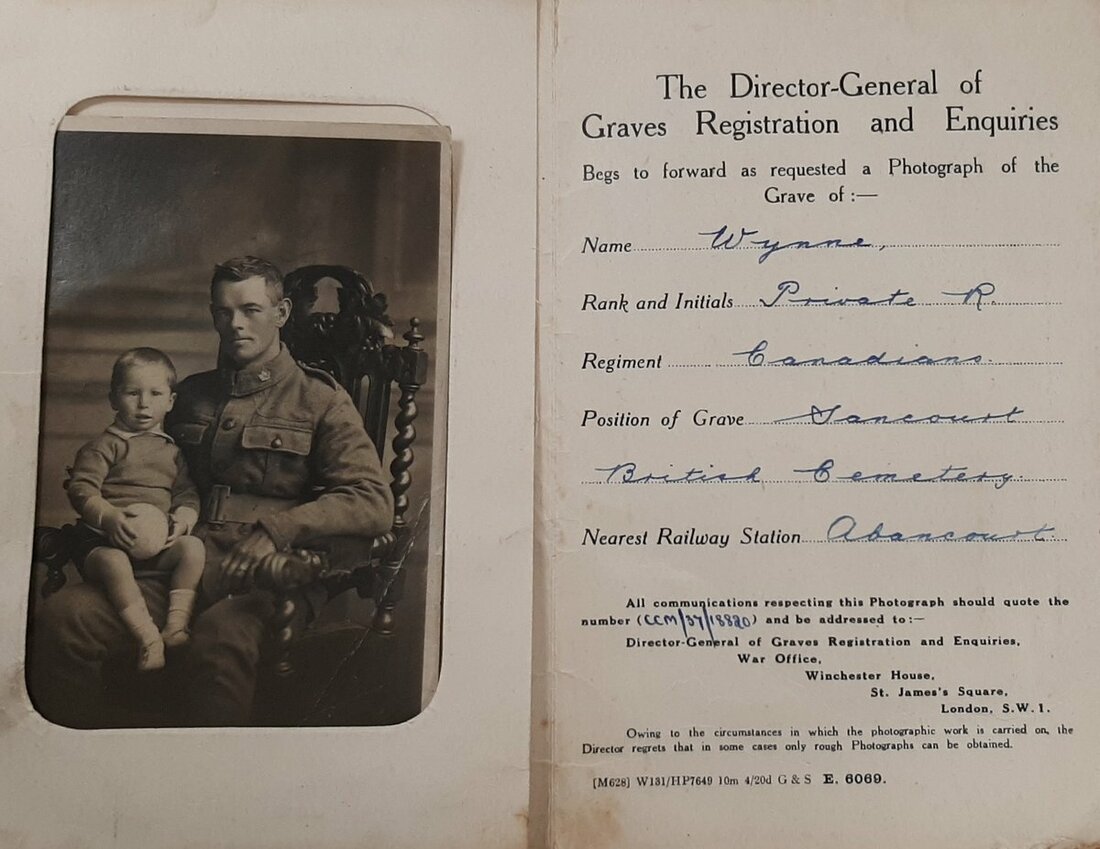 The Director-General of
Graves Registration and Enquiries
Begs to forward as requested a Photograph of the
Grave of :—
Name Wynne,
Rank and Initials Private R.
Regiment Canadians.
Position of Grave Sancourt
British Cemetery
Nearest Railway Station Abancourt.
All communications respecting this Photograph should quote the
number (CCM/37/18820) and be addressed to:—
Director-General of Graves Registration and Enquiries,
War Office,
Winchester House,
St. James's Square,
London, S.W.1.
Owing to the circumstances in which the photographic work is carried on, the
Director regrets that in some cases only rough Photographs can be obtained.
[M628] W131/HP7649 10m 4/20d G & S E. 6069.